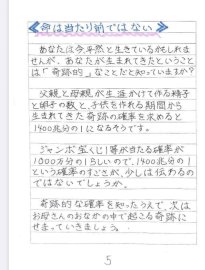 命は当たり前ではない
あなたは今、平然と生きているかもしれま
せんが、あなたが生まれてきたということ
は「奇跡的」なことだと知っていますか?
父親と母親が生涯かけて作る精子
と卵子の数と、子供を作れる期間から
生まれてきた奇跡の確率を求めると
1400兆分の1になるそうです。
ジャンボ宝くじ1等が当たる確率が
1000万分の1らしいので、1400兆分の1
という確率のすごさが、少しは伝わるの
ではないでしょうか。
奇跡的な確率を知ったうえで、次は
お母さんのおなかの中で起こる奇跡に
せまっていきましょう。
5